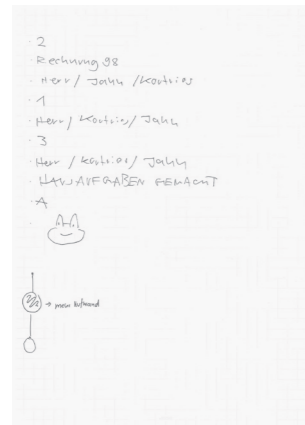 · 2
· Rechnung 98
· Herr / Jahn / Kostrios
· 1
· Herr / Kostrios / Jahn
· 3
· Herr / Kostrios / Jahn
· HAUSAUFGABEN GEMACHT
· A
→ mein